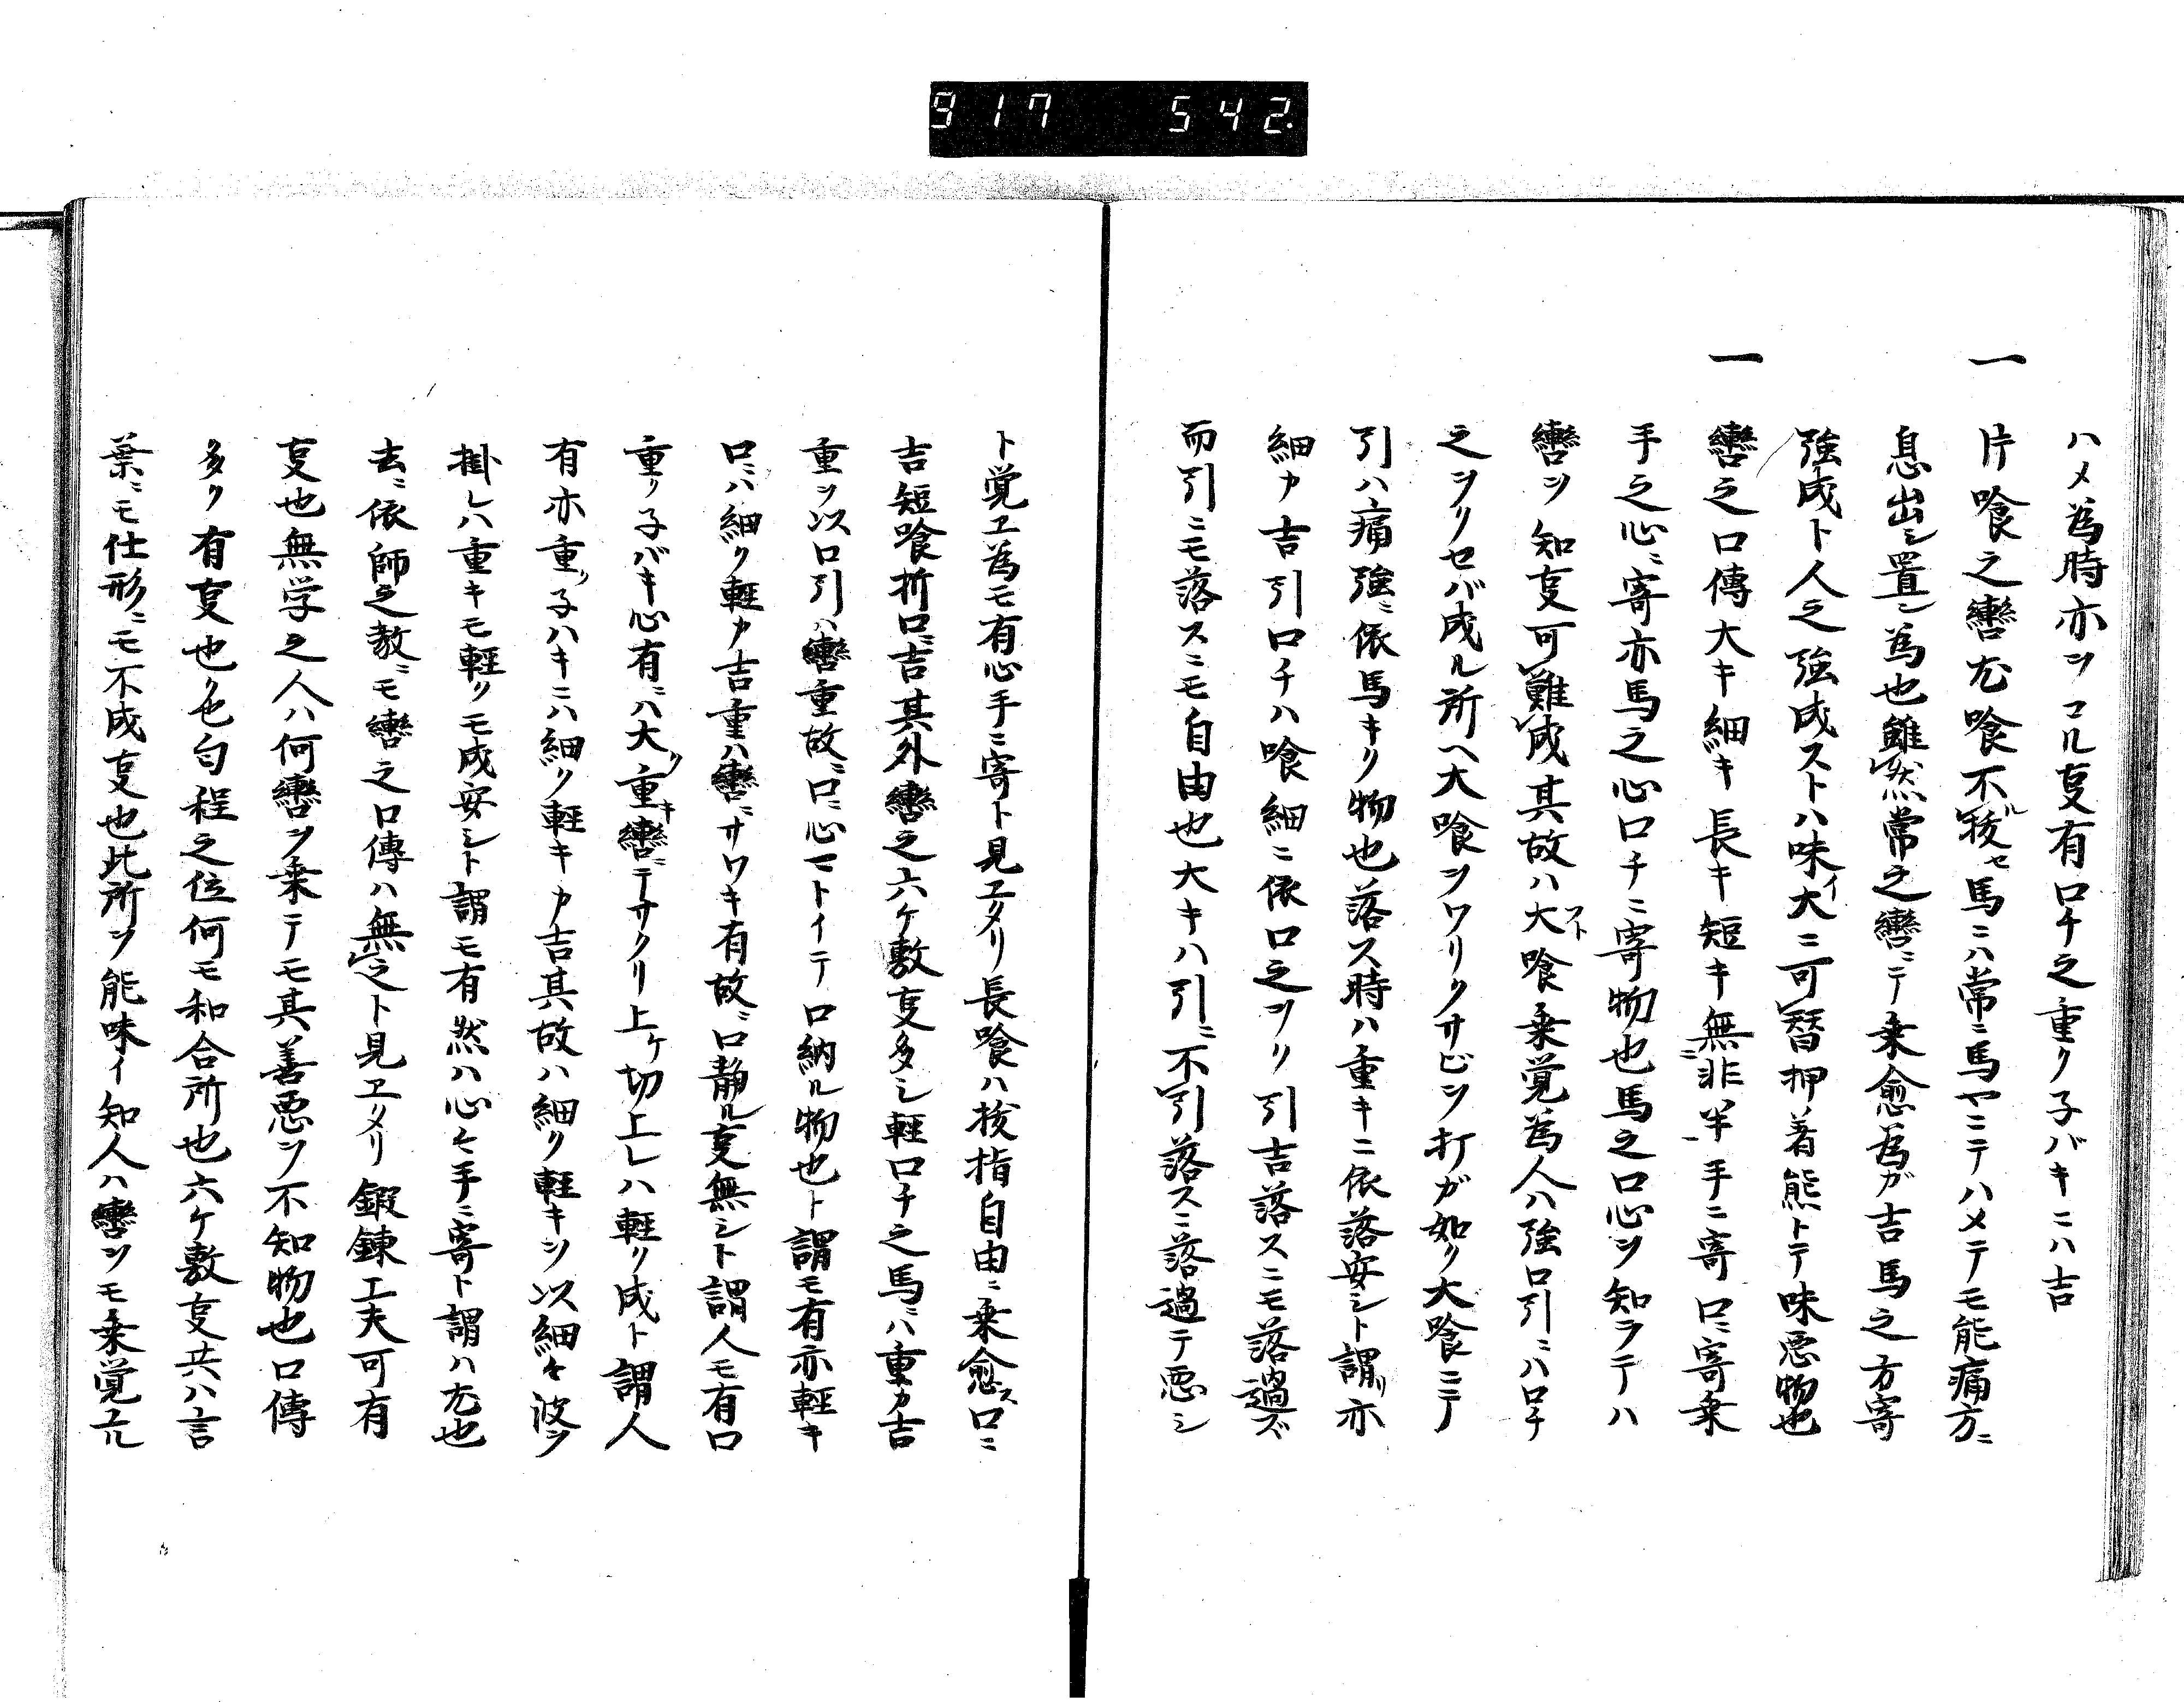 917 542.
ハメ為時亦ツコル㕝有口チ之重クネバキニハ吉
一 片喰之轡尤喰不抜セ馬ニハ常ニ馬ヤニテハメテモ能痛方ニ
息出シ置シ為也雖然常之轡ニテ乗愈為ガ吉馬之方寄
強成ト人之強成ストハ味イ大ニ可替押着熊トテ味悪物也
一 轡之口傳大キ細キ長キ短キ無非半手ニ寄口ニ寄乗
手之心ニ寄亦馬之心口チニ寄物也馬之口心ヲ知ラテハ
轡ヲ知㕝可難成其故ハ大フト喰乗覚為人ハ強口引ニハロチ
之ツリセバ成ル所ヘ大喰ヲワリクサビヲ打ガ如ク大喰ニテ
引ハ痛強ニ依馬キリ物也落ス時ハ重キニ依落安シト謂リ亦
細カ吉引口チハ喰細ニ依口之ツリ引吉落スニモ落過ズ
而引ニモ落スニモ自由也大キハ引ニ不引落スニ落過テ悪シ
ト覚エ為モ有心手ニ寄ト見エタリ長喰ハ抜指自由ニ乗愈ス口ニ
吉短喰折口ニ吉其外轡之六ケ敷㕝多シ軽口チ之馬ニハ重カ吉
重ヲ以口引ハ轡重故ニ口ニ心マトイテ口納ル物也ト謂モ有亦軽キ
口ニハ細ク軽カ吉重ハ轡ニサワキ有故ニ口静ル㕝無シト謂人モ有口
重クネバキ心有ニハ大ク重キ轡ニテサクリ上ケ切上レハ軽ク成ト謂人
有亦重クネハキニハ細ク軽キカ吉其故ハ細ク軽キヲ以細々波ヲ
掛レハ重キモ軽クモ成安シト謂モ有然ハ心々手ニ寄ト謂ハ尤也
去ニ依師之教ニモ轡之口傳ハ無之ト見エタリ鍛錬工夫可有
㕝也無学之人ハ何轡ヲ乗テモ其善悪ヲ不知物也口傳
多ク有㕝也色匂程之位何モ和合所也六ケ敷㕝共ハ言
葉ニモ仕形ニモ不成㕝也此所ヲ能味イ知人ハ轡ヲモ乗覚